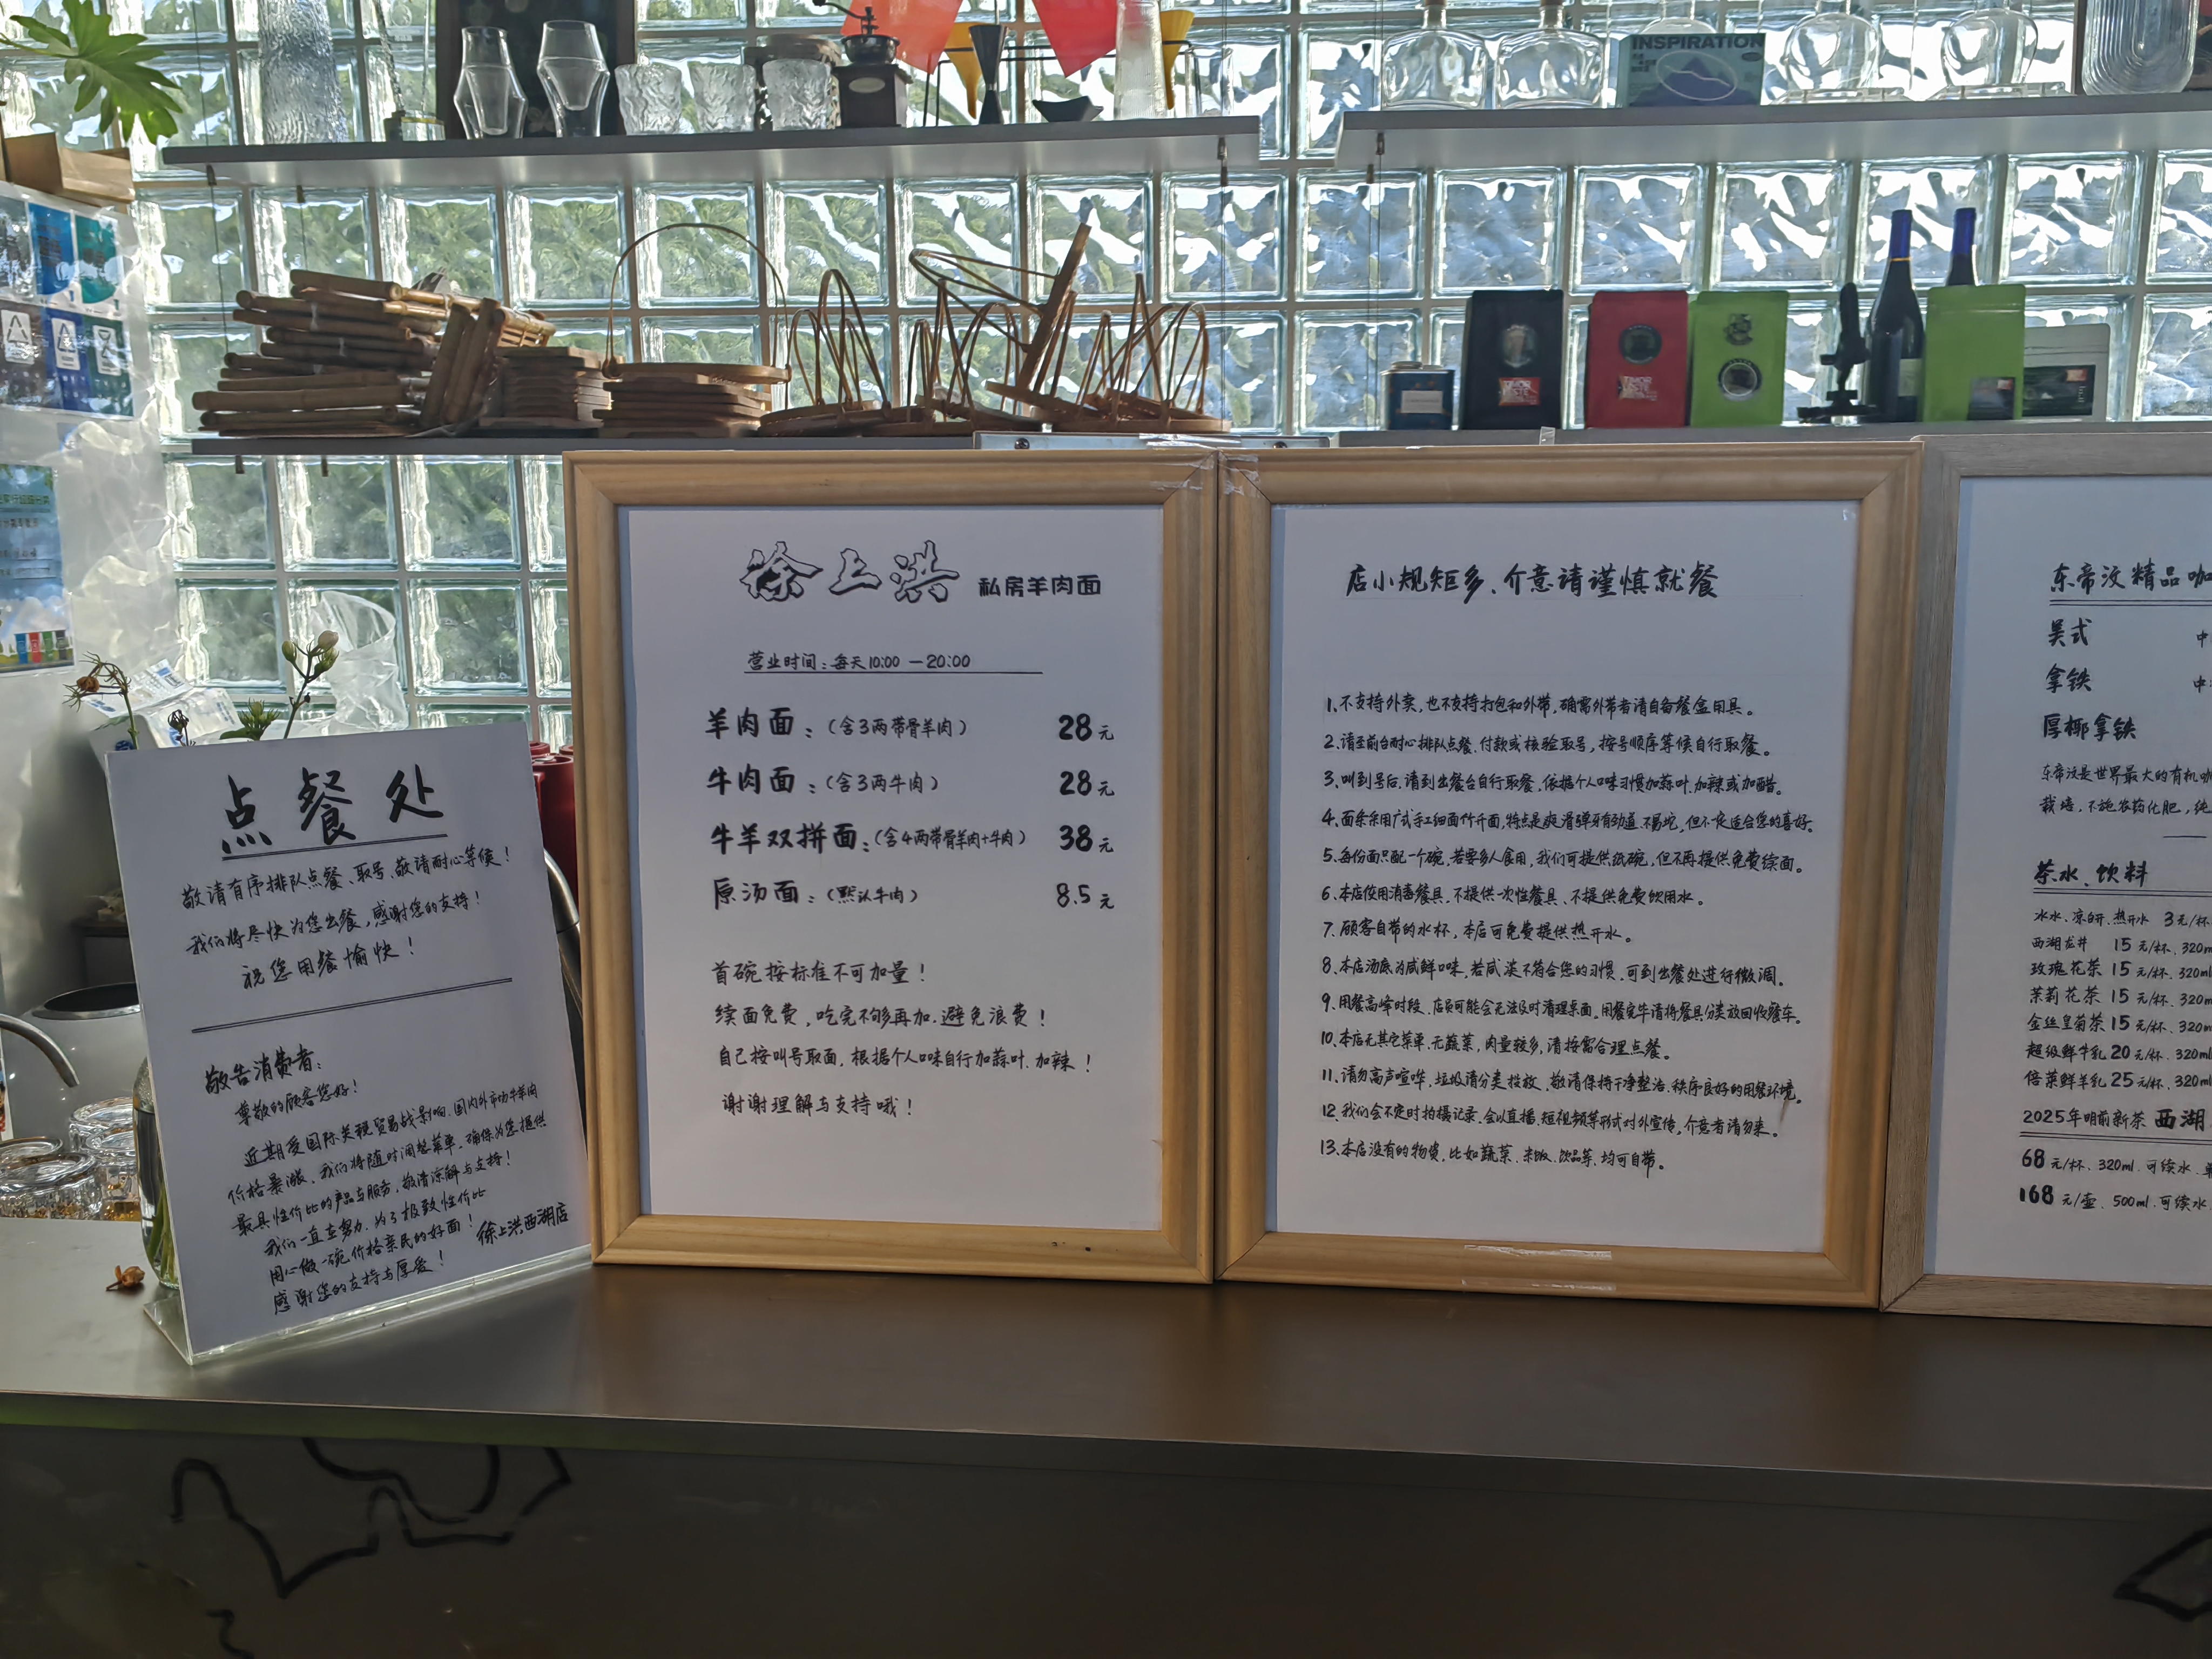 INSPIRATION
点餐处
敬请有序排队点餐、取号、敬请耐心等候！
我们将尽快为您出餐，感谢您的支持！
祝您用餐愉快！
敬告消费者：
尊敬的顾客您好！
近期受国际关税贸易战影响、国内外市场牛羊肉
价格暴涨、我们将随时调整菜单、确保为您提供
最具性价比的产品与服务，敬请谅解与支持！
我们一直在努力、为了极致性价比
用心做一碗价格亲民的好面！
徐上洪西湖店
感谢您的支持与厚爱！
徐上洪 私房羊肉面
营业时间：每天10:00 — 20:00
羊肉面：（含3两带骨羊肉） 28元
牛肉面：（含3两牛肉） 28元
牛羊双拼面：（含4两带骨羊肉+牛肉） 38元
原汤面：（默认牛肉） 8.5元
首碗按标准不可加量！
续面免费，吃完不够再加、避免浪费！
自己按叫号取面，根据个人口味自行加蒜叶、加辣！
谢谢理解与支持哦！
店小规矩多、介意请谨慎就餐
1、不支持外卖，也不支持打包和外带，确需外带者请自备餐盒用具。
2、请至前台耐心排队点餐、付款或核验取号，按号顺序等候自行取餐。
3、叫到号后、请到出餐台自行取餐、依据个人口味习惯加蒜叶、加辣或加醋。
4、面条采用广式手工细面竹升面，特点是爽滑弹牙有劲道、不易坨，但不一定适合您的喜好。
5、每份面只配一个碗，若要多人食用，我们可提供纸碗，但不再提供免费续面。
6、本店使用消毒餐具，不提供一次性餐具、不提供免费饮用水。
7、顾客自带的水杯，本店可免费提供热开水。
8、本店汤底为咸鲜口味，若咸淡不符合您的习惯、可到出餐处进行微调。
9、用餐高峰时段、店员可能会无法及时清理桌面。用餐完毕请将餐具分类放回收餐车。
10、本店无其它菜单、无蔬菜，肉量较多，请按需合理点餐。
11、请勿高声喧哗，垃圾请分类投放、敬请保持干净整洁、秩序良好的用餐环境。
12、我们会不定时拍摄记录、会以直播、短视频等形式对外宣传，介意者请勿来。
13、本店没有的物货，比如蔬菜、米饭、饮品等、均可自带。
东帝汶精品咖
美式 中
拿铁 中
厚椰拿铁
东帝汶是世界最大的有机咖
栽培，不施农药化肥，纯
茶水、饮料
冰水、凉白开、热开水 3元/杯
西湖龙井 15元/杯、320ml
玫瑰花茶 15元/杯、320ml
茉莉花茶 15元/杯、320ml
金丝皇菊茶 15元/杯、320ml
超级鲜牛乳 20元/杯、320ml
倍莱鲜羊乳 25元/杯、320ml
2025年明前新茶 西湖
68元/杯、320ml、可续水、
168元/壶、500ml、可续水、